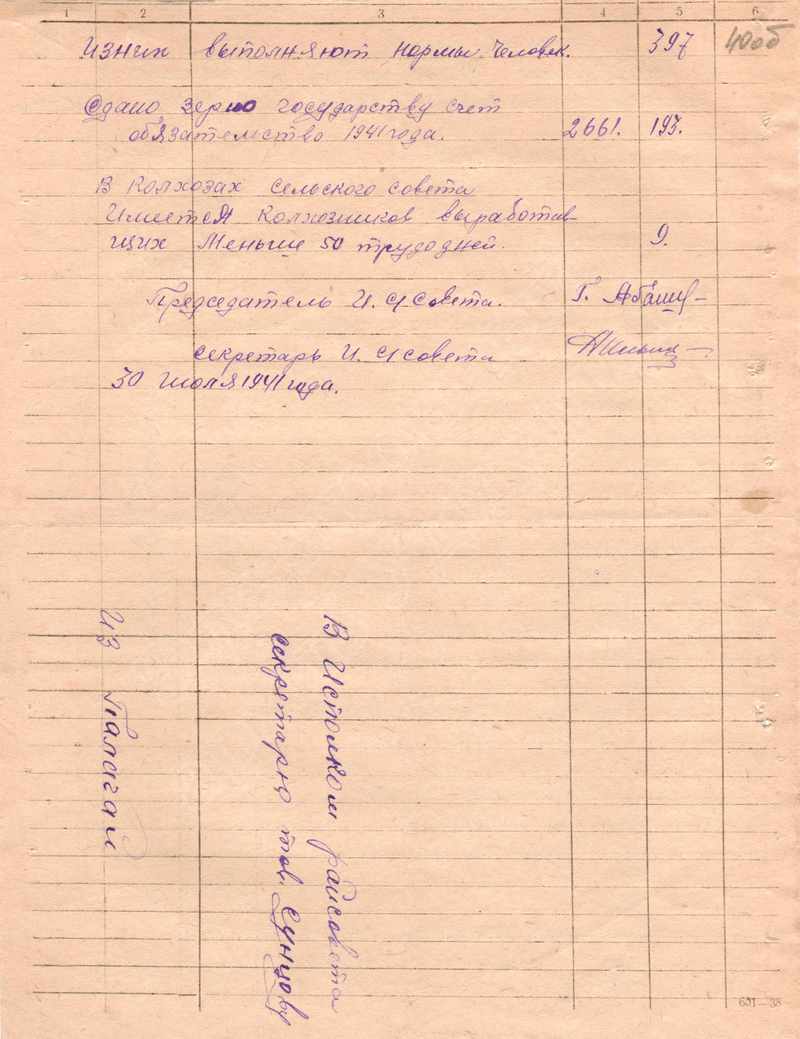 1 2 3 4 5 6
Изних выполняют нормы человек. 397 40об
Сдано зерно государству счет
обязательство 1941 года. 2661. 193.
В Колхозах сельского совета
Имеется колхозников выработав
щих меньше 50 трудодней. 9.
Председатель И. С/совета. Г. Абаши
секретарь И. С/совета
30 июля 1941 года.
В Исполком райсовета
секретарю тов. Сунцову
из Палагай
631—38